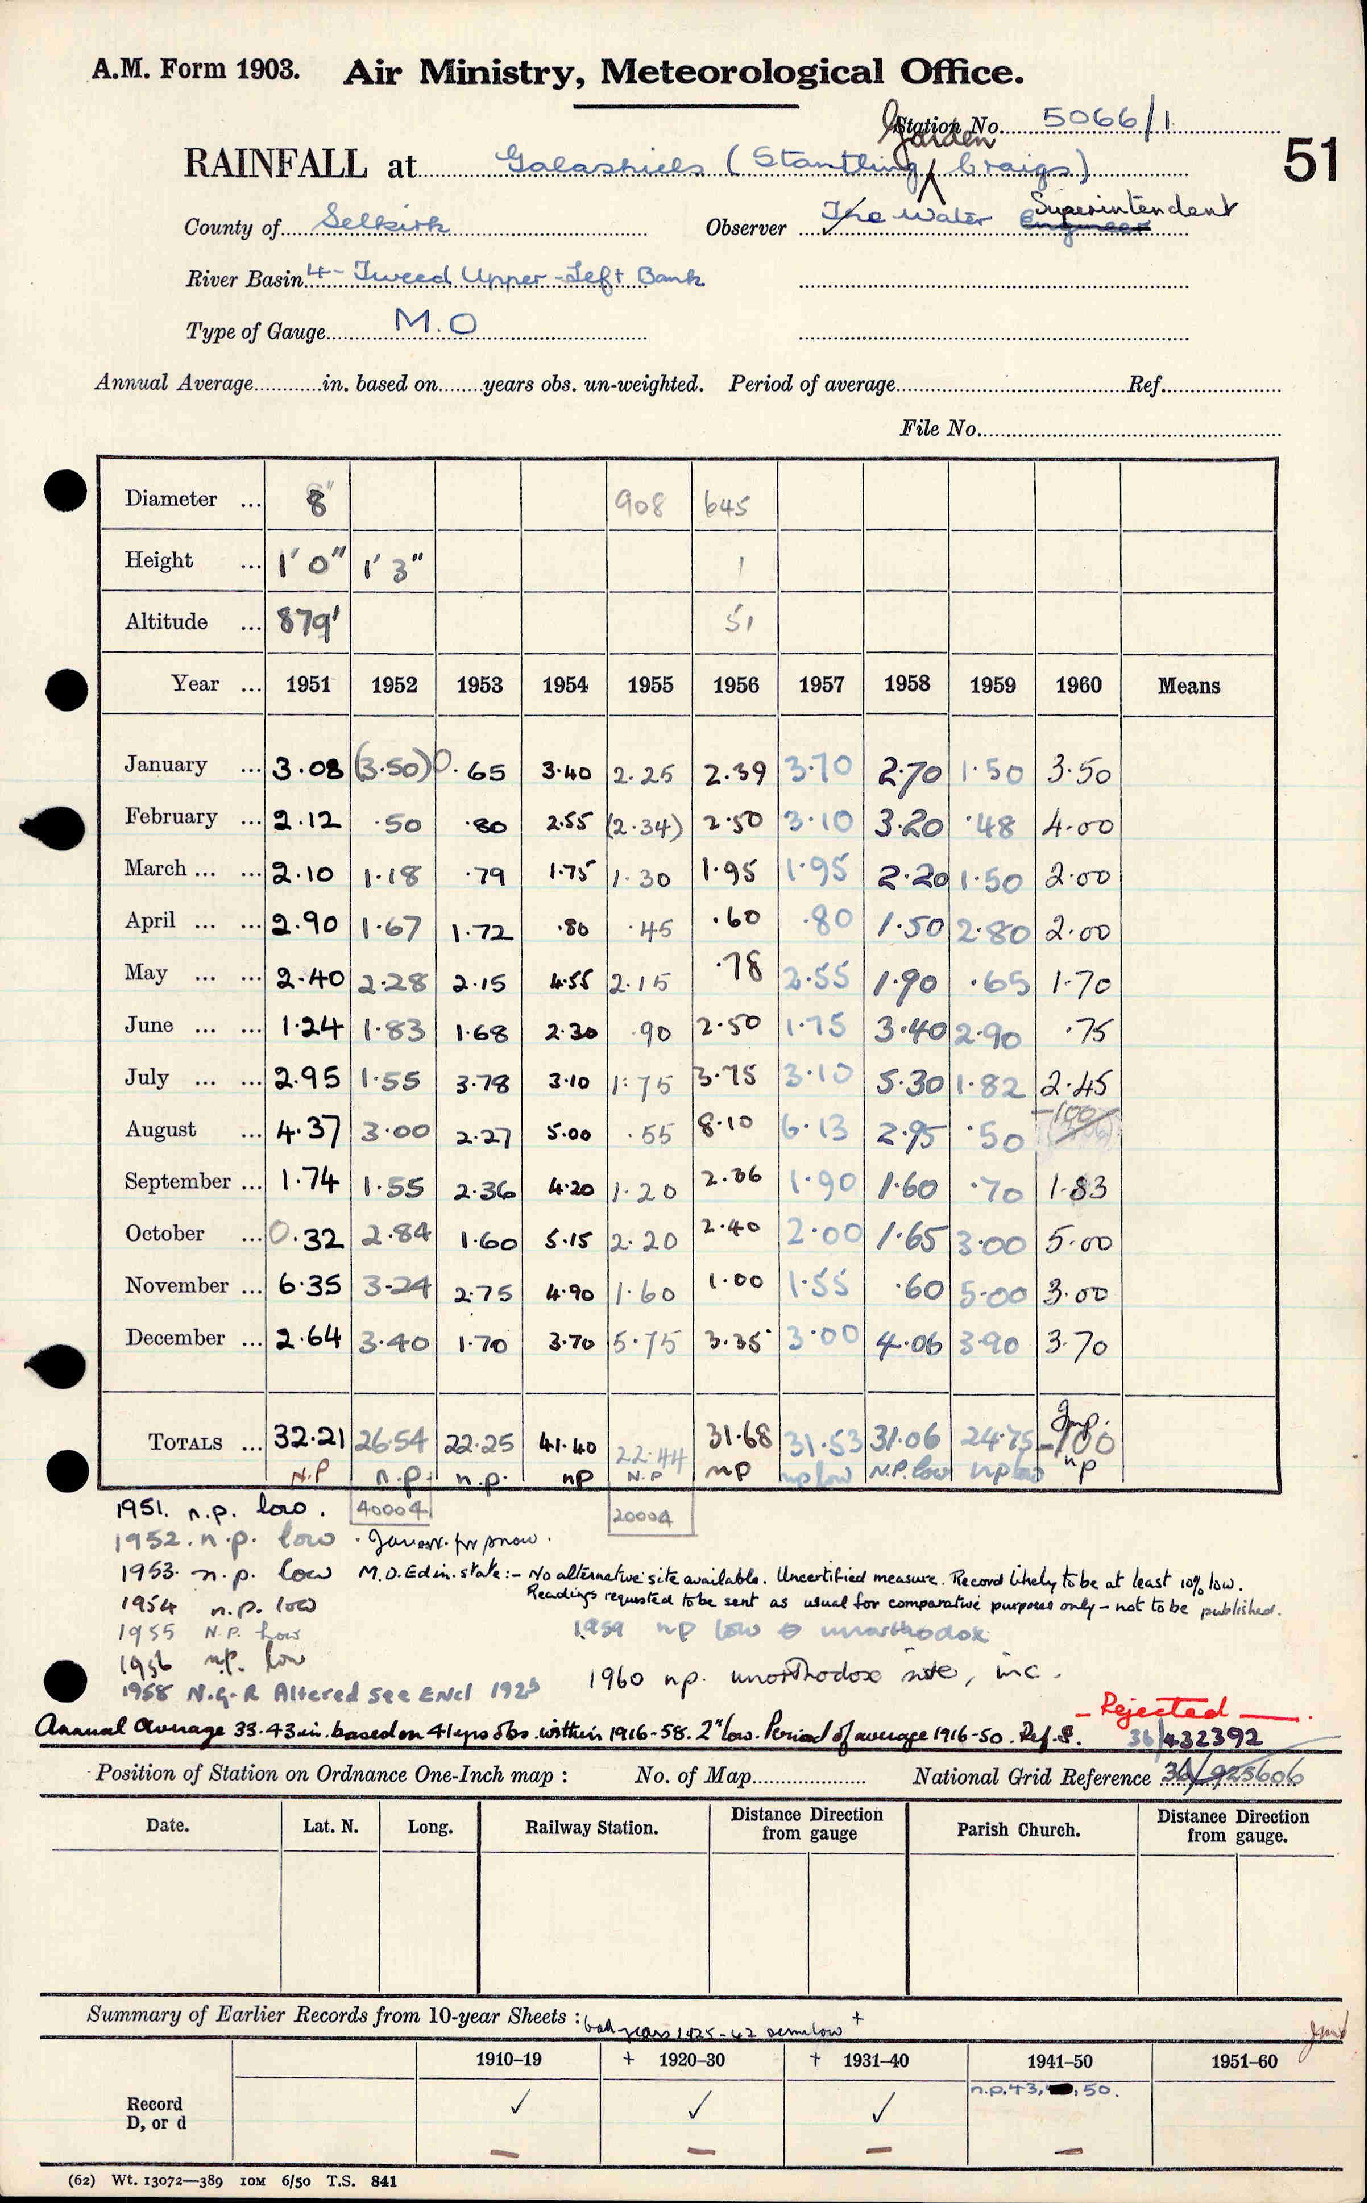 A.M. Form 1903. Air Ministry, Meteorological Office.
Station No. 5066/1
51
Garden
RAINFALL at Galashiels (Stantling Craigs)
County of Selkirk Observer The Water Engineer Superintendent
River Basin 4 - Tweed Upper - Left Bank
Type of Gauge M.O
Annual Average in. based on years obs. un-weighted. Period of average Ref.
File No.
Diameter ... 8" 908 645
Height ... 1' 0" 1' 3" 1
Altitude ... 879' 51
Year ... 1951 1952 1953 1954 1955 1956 1957 1958 1959 1960 Means
January ... 3.08 (3.50) 0.65 3.40 2.25 2.39 3.70 2.70 1.50 3.50
February ... 2.12 .50 .80 2.55 (2.34) 2.50 3.10 3.20 .48 4.00
March ... ... 2.10 1.18 .79 1.75 1.30 1.95 1.95 2.20 1.50 2.00
April ... ... 2.90 1.67 1.72 .80 .45 .60 .80 1.50 2.80 2.00
May ... ... 2.40 2.28 2.15 4.55 2.15 .78 2.55 1.90 .65 1.70
June ... ... 1.24 1.83 1.68 2.30 .90 2.50 1.75 3.40 2.90 .75
July ... ... 2.95 1.55 3.78 3.10 1.75 3.75 3.10 5.30 1.82 2.45
August ... 4.37 3.00 2.27 5.00 .55 8.10 6.13 2.95 .50 -100
September ... 1.74 1.55 2.36 4.20 1.20 2.36 1.90 1.60 .70 1.83
October ... 0.32 2.84 1.60 5.15 2.20 2.40 2.00 1.65 3.00 5.00
November ... 6.35 3.24 2.75 4.90 1.60 1.00 1.55 .60 5.00 3.00
December ... 2.64 3.40 1.70 3.70 5.75 3.35 3.00 4.06 3.90 3.70
TOTALS ... 32.21 26.54 22.25 41.40 22.44 31.68 31.53 31.06 24.75 Imp. -100
N.P n.p. n.p. np N.P np np low N.P. low np low np
1951. n.p. low. 40004 20004
1952. n.p. low. for snow.
1953. n.p. low M.O. Edin. state:- No alternative site available. Uncertified measure. Record likely to be at least 10% low.
Readings requested to be sent as usual for comparative purposes only - not to be published.
1954 n.p. low
1955 N.P. low 1959 np low unorthodox
1956 n.p. low 1960 np. unorthodox site, inc.
1958 N.G.R Altered see Encl 1923
- Rejected -
Annual average 33.43 in. based on 41 yrs obs. within 1916-58. 2" low. Period of average 1916-50. Ref. S. 36/432392
Position of Station on Ordnance One-Inch map : No. of Map National Grid Reference 36/925606
Date. Lat. N. Long. Railway Station. Distance Direction from gauge Parish Church. Distance Direction from gauge.
Summary of Earlier Records from 10-year Sheets : bad years 1925-42 low +
1910–19 + 1920–30 + 1931–40 1941–50 1951–60
Record D, or d ✓ ✓ ✓ n.p. 43, 50.
(62) Wt. 13072—389 10M 6/50 T.S. 841